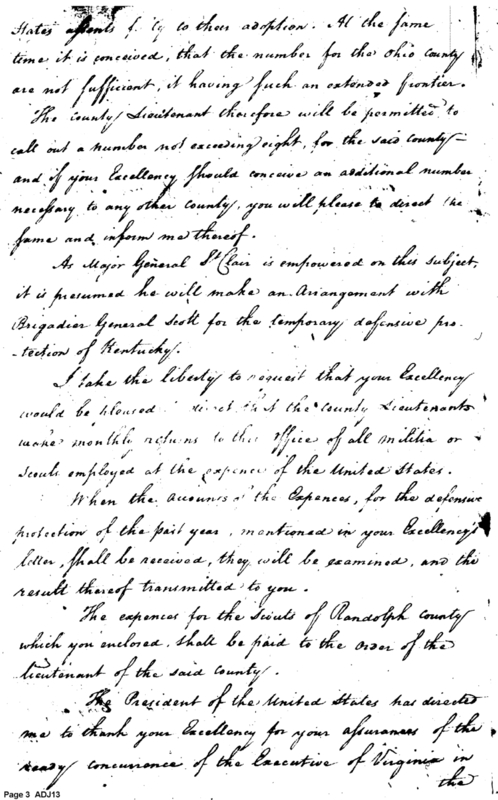 States assents f. ty to their adoption. At the same
time it is conceived, that the number for the Ohio County
are not sufficient, it having such an extended frontier.
The county Lieutenant therefore will be permitted to
call out a number not exceeding eight, for the said county—
and if your Excellency should conceive an additional number
necessary to any other county, you will please to direct the
same and inform me thereof.
As Major General St Clair is empowered on this subject,
it is presumed he will make an Arangement with
Brigadier General Scott for the temporary defensive pro-
-tection of Kentucky.
I take the liberty to request that your Excellency
would be pleased direct that the County Lieutenants
make monthly returns to this Office of all militia or
Scouts employed at the expence of the United States.
When the accounts of the Expences, for the defensive
protection of the past year, mentioned in your Excellency's
letter, shall be received, they will be examined, and the
result thereof transmitted to you.
The expences for the Scouts of Randolph County
which you enclosed, shall be paid to the order of the
Lieutenant of the said County.
The President of the United States has directed
me to thank your Excellency for your assurances of the
ready concurrence of the Executive of Virginia in
the
Page 3 ADJ13